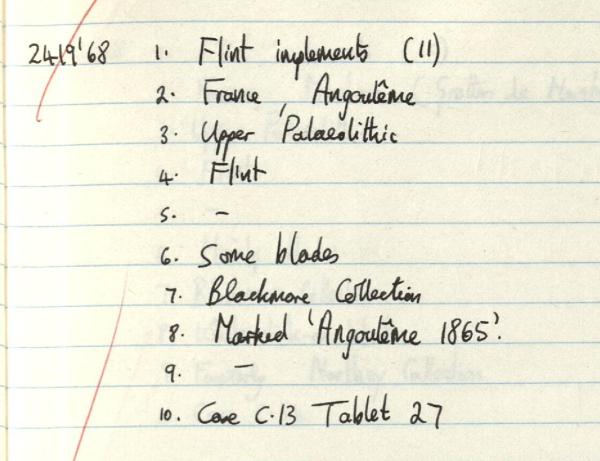 2419'68 1. Flint implements (11)
2. France, Angoulême
3. Upper Palaeolithic
4. Flint
5. -
6. Some blades
7. Blackmore Collection
8. Marked 'Angoulême 1865'.
9. -
10. Case C.13 Tablet 27